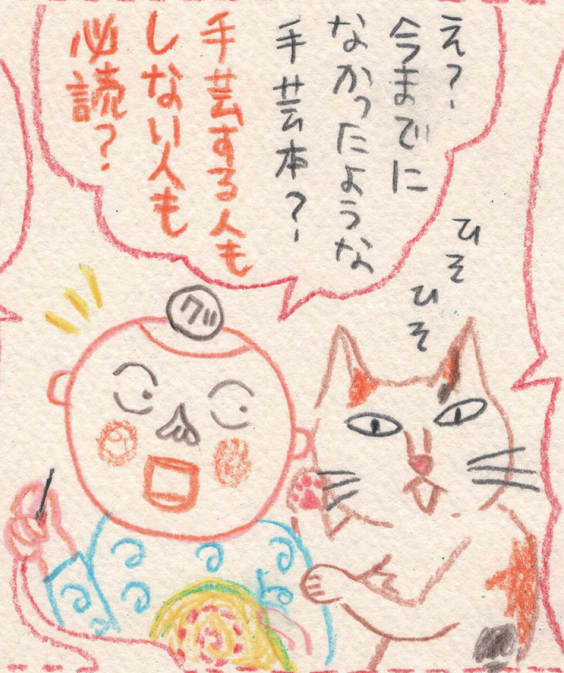 え？
今までに
なかったような
手芸本？
手芸する人も
しない人も
必読？
ひそ
ひそ
グリ